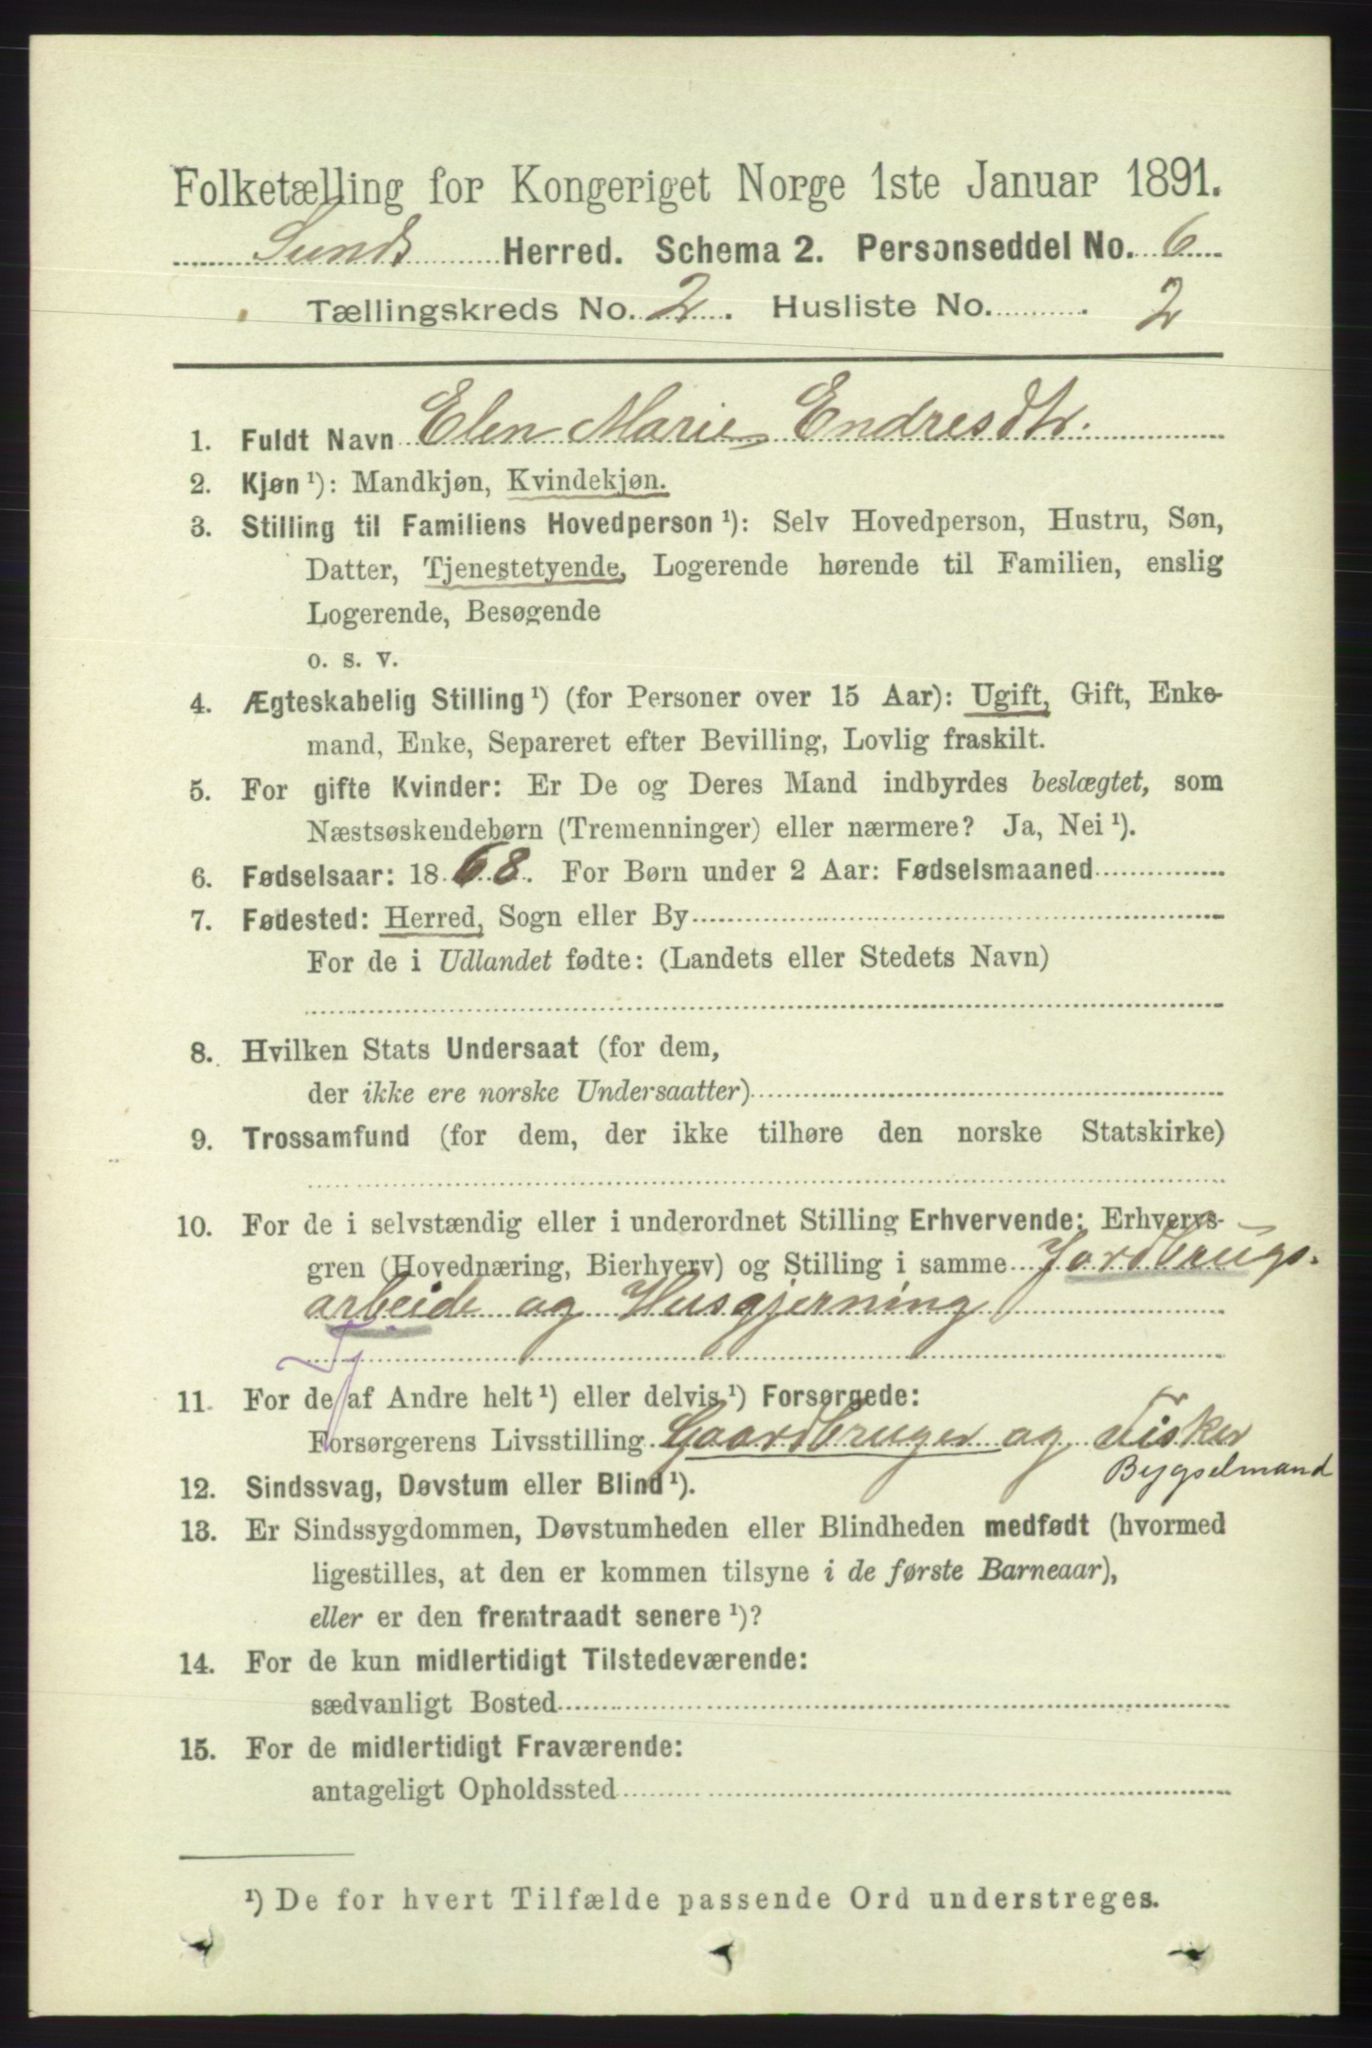 Folketælling for Kongeriget Norge 1ste Januar 1891.
Sunds Herred. Schema 2. Personseddel No. 6
Tællingskreds No. 2. Husliste No. 2
1. Fuldt Navn Elen Marie Endresdtr.
2. Kjøn ¹): Mandkjøn, Kvindekjøn.
3. Stilling til Familiens Hovedperson ¹): Selv Hovedperson, Hustru, Søn,
Datter, Tjenestetyende, Logerende hørende til Familien, enslig
Logerende, Besøgende
o. s. v.
4. Ægteskabelig Stilling ¹) (for Personer over 15 Aar): Ugift, Gift, Enke-
mand, Enke, Separeret efter Bevilling, Lovlig fraskilt.
5. For gifte Kvinder: Er De og Deres Mand indbyrdes beslægtet, som
Næstsøskendebørn (Tremenninger) eller nærmere? Ja, Nei ¹).
6. Fødselsaar: 1868. For Børn under 2 Aar: Fødselsmaaned
7. Fødested: Herred, Sogn eller By
For de i Udlandet fødte: (Landets eller Stedets Navn)
8. Hvilken Stats Undersaat (for dem,
der ikke ere norske Undersaatter)
9. Trossamfund (for dem, der ikke tilhøre den norske Statskirke)
10. For de i selvstændig eller i underordnet Stilling Erhvervende: Erhvervs-
gren (Hovednæring, Bierhverv) og Stilling i samme Jordbrugs-
arbeide og Husgjerning
Tj
11. For de af Andre helt ¹) eller delvis ¹) Forsørgede:
Forsørgerens Livsstilling Gaardbruger og Fisker
Bygselmand
12. Sindssvag, Døvstum eller Blind ¹).
13. Er Sindssygdommen, Døvstumheden eller Blindheden medfødt (hvormed
ligestilles, at den er kommen tilsyne i de første Barneaar),
eller er den fremtraadt senere ¹)?
14. For de kun midlertidigt Tilstedeværende:
sædvanligt Bosted
15. For de midlertidigt Fraværende:
antageligt Opholdssted
¹) De for hvert Tilfælde passende Ord understreges.